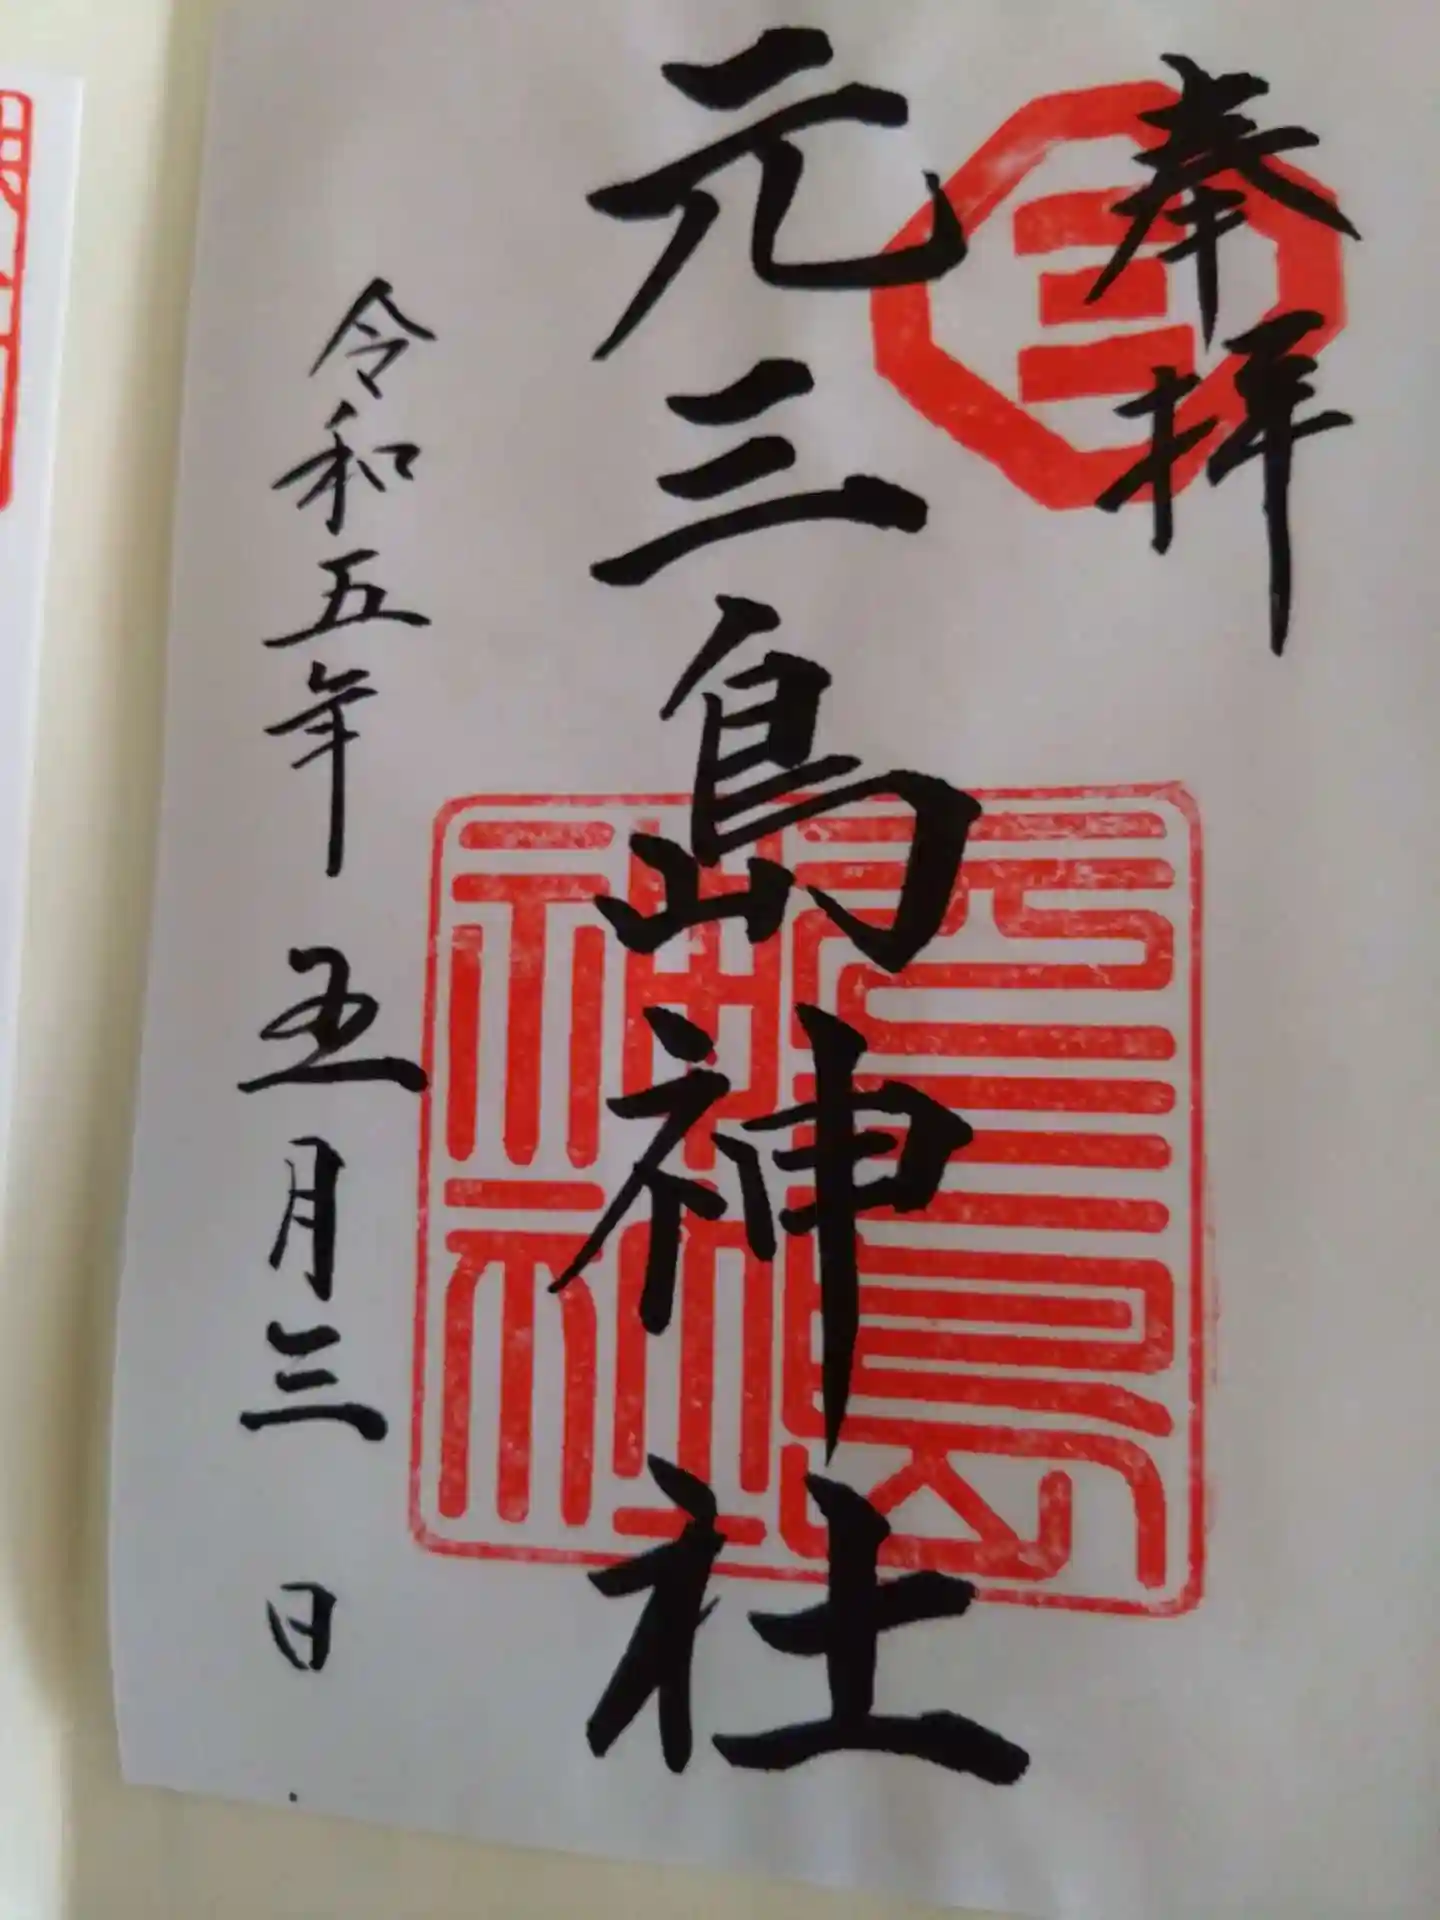 奉拝
三
元三島神社
元三島神社
令和五年 五月三日